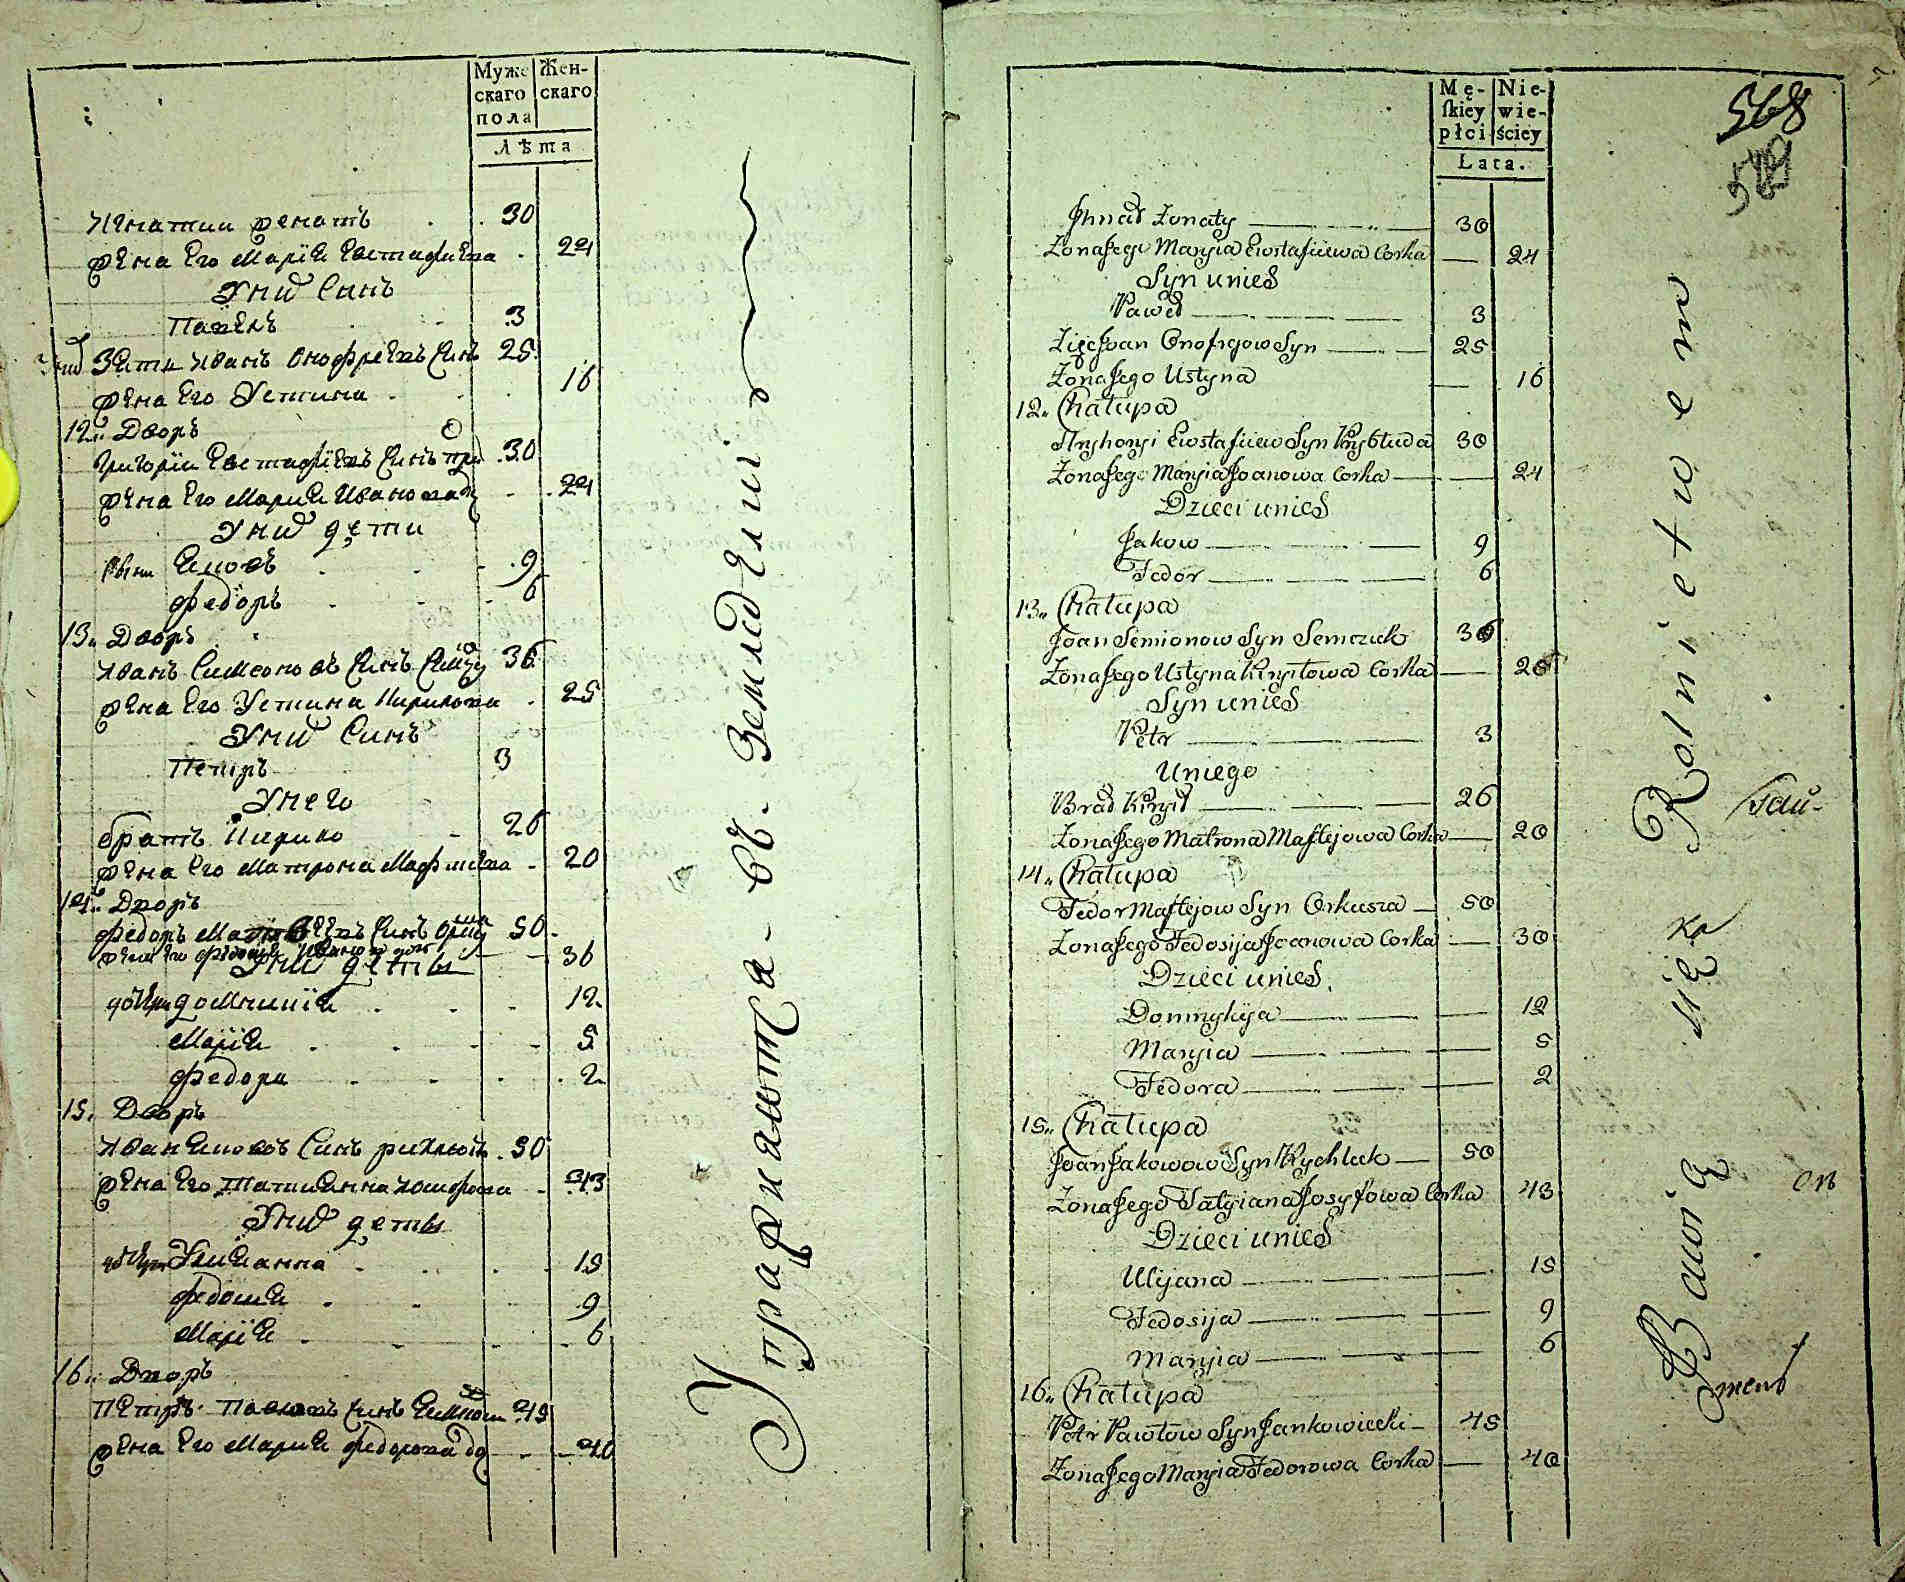 Муже Жен-
скаго скаго
пола
Лѣта
Игнатии женатъ 30
жена Его Марїя Евстафиева 24
У них Синъ
Павелъ 3
Зять Иванъ Онофреевъ Синъ 25
жена Его Устина 16
12. Дворъ
Григорїи Евстафїевъ Синъ 30
жена Его Мария Иванова 24
У них дети
Яковъ 9
Федоръ 6
13. Дворъ
Иванъ Симеоновъ Синъ 36
жена Его Устина Кирилова 25
У них Синъ
Петръ 3
У него
братъ Кирило 26
жена Его Матрона Мафтиева 20
14. Дворъ
Федоръ Синъ 50
жена Его Федосия Иванова 36
У них деты
Домникия 12
Марїя 5
Федора 2
15. Дворъ
Иван Яковов Синъ рихлюкъ 50
жена Его Татиянна Иосифова 43
У них деты
Улиянна 15
Федосия 9
Марїя 6
16. Дворъ
Петръ Павловъ Синъ 45
жена Его Мария Федорова 40
Упражняются въ Земледелїи
Mę- Nie-
skiey wie-
płci ściey
Lata.
568
Jhnat Zonaty 30
Zona Jego Maryia Ewstafiiewa Corka 24
Syn u nich
Paweł 3
Zięc Jvan Onofrejow Syn 25
Zona Jego Ustyna 16
12. Chałupa
Hryhoryi Ewstafiiew Syn Prystuda 30
Zona Jego Maryia Joanowa Corka 24
Dzieci u nich
Jakow 9
Fedor 6
13. Chałupa
Joan Semionow Syn Semczuk 36
Zona Jego Ustyna Kiryłowa Corka 26
Syn u nich
Petr 3
U niego
Brat Kirył 26
Zona Jego Matrona Maftejowa Corka 20
14. Chałupa
Fedor Maftejow Syn Orkusza 50
Zona Jego Fedosija Joanowa Corka 30
Dzieci u nich
Domnykija 12
Maryia 5
Fedora 2
15. Chałupa
Joan Jakowow Syn Rychluk 50
Zona Jego Tatyiana Josyfowa Corka 43
Dzieci u nich
Ulijana 15
Fedosija 9
Maryia 6
16. Chałupa
Petr Pawłow Syn Jankowiecki 45
Zona Jego Maryia Fedorowa Corka 40
Bawią się Rolnictwem